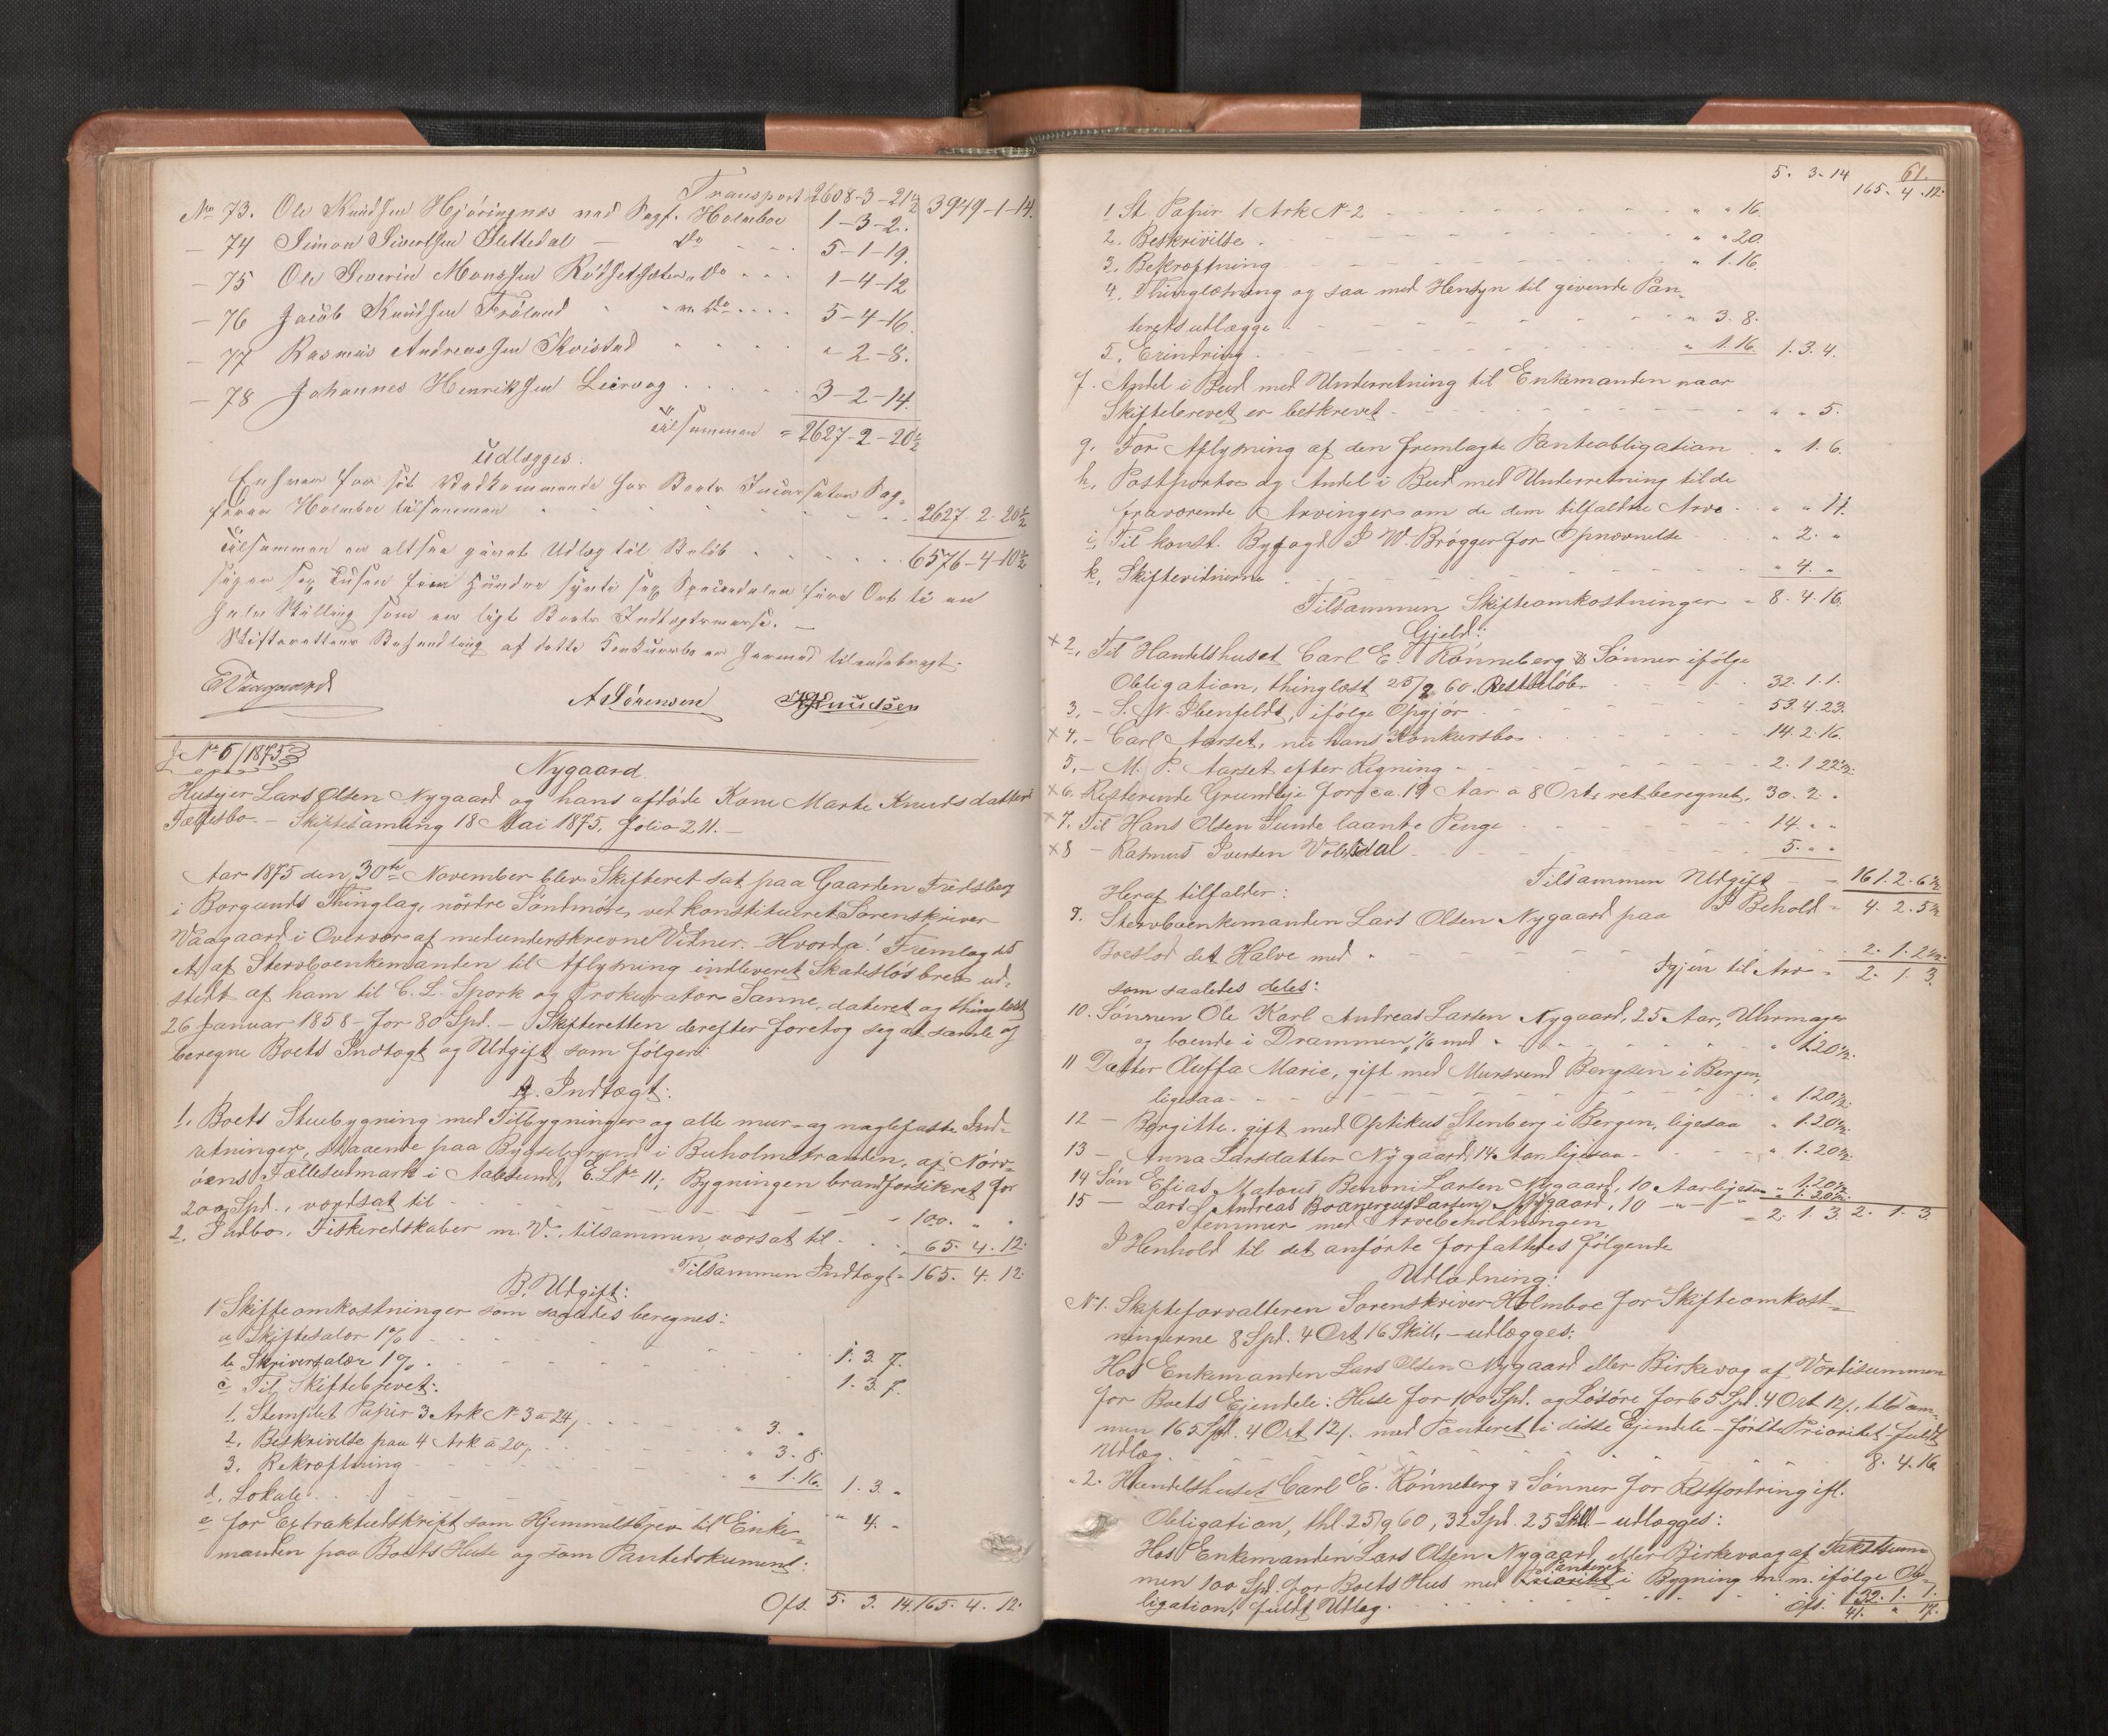 Transport 2608-3-21½ 3949-1-14.
No 73. Ole Knudsen Hjöringnes ved Sagf. Holmboe 1-3-2.
- 74 Simon Sivertsen Slettedal — Do 5-1-19.
- 75 Ole Severin Monssen Rödsetsæter „ Do 1-4-12
- 76 Jacob Knudsen Fröland „ Do 5-4-16.
- 77 Rasmus Andreassen Kvistad " 2-8.
- 78 Johannes Henriksen Leirvog 3-2-14.
Tilsammen = 2627-2-20½
Udlægges:
Enhver for sit Vedkommende hos Boets Incassator Sag-
fører Holmboe tilsammen 2627. 2. 20½
Tilsammen er altsaa gjort Udlæg til Beløb 6576-4-10½
siger sex Tusen fem Hundre sytti sex Speciedaler fire Ort ti en
halv Skilling som er ligt Boets Indtægtsmasse. —
Skifterettens Behandling af dette Konkursbo er hermed tilendebragt.
EVaagaard A Sørensen Knudsen
J. No 6/1875
Nygaard.
Husejer Lars Olsen Nygaard og hans afdøde Kone Marte Knudsdatters
Fællesbo. — Skiftesamling 18 Mai 1875. folio 211. —
Aar 1875 den 30te November blev Skifteret sat paa Gaarden Fredsberg
i Borgunds Thinglag, nördre Söndmöre, ved konstitueret Sorenskriver
Vaagaard i Overvær af medunderskrevne Vidner. — Hvorda! Fremlagdes
et af Stervboenkemanden til Aflysning indleveret Skadeslösbrev ud-
stedt af ham til C. L. Spork og Prokurator Sanne, dateret og thinglæst
26 Januar 1858 — for 80 Spd. — Skifteretten derefter foretog seg at samle og
beregne Boets Indtægt og Udgift som følger:
A. Indtægt:
1. Boets Stuebygning med Tilbygninger og alle mur- og naglefaste Ind-
retninger, staaende paa Bygselgrund i Buholmstranden, af Nörv-
öens Fællesudmark i Aalesund, E. L. No 11; Bygningen brandforsikret for
200 Spd., værdsat til 100. " "
2. Indbo, Fiskeredskaber m. V., tilsammen værsat til 65. 4. 12.
Tilsammen Indtægt = 165. 4. 12
B. Udgift:
1 Skifteomkostninger som saaledes beregnes:
a Skiftesalær 1% 1. 3. 7.
b Skriversalær 1% 1. 3. 7.
c Til Skiftebrevet:
1. Stemplet Papir 3 Ark No 3 a 24 " 3. "
2. Beskrivelse paa 4 Ark à 20 " 3. 8.
3. Bekræftning " 1. 16. 1. 3. "
d. Lokale " 4. "
e for Extraktudskrift som Hjemmelsbrev til Enke-
manden paa Boets Huse og som Pantedokument:
Ofs. 5. 3. 14. 165. 4. 12.
61.
5. 3. 14 165. 4. 12.
1. St. Papir 1 Ark No 2 " " 16.
2. Beskrivelse " " 20.
3. Bekræftning " 1. 16.
4. Thinglæsning og saa med Hensyn til givende Pan-
terets utlægge " 3. 8.
5. Erindring " 1. 16. 1. 3. 4.
f. Andel i Bud med Underretning til Enkemanden naar
Skiftebrevet er beskrevet " " 5.
g. For Aflysning af den fremlagte Panteobligation " 1. 6.
h. Postporto og Andel i Bud med Underretning til de
fraværende Arvinger om de dem tilfaldne Arve " " 11.
i. Til konst. Byfogd P W. Brögger for Opnævnelse " 2. "
k. Skiftevidnerne " 4. "
Tilsammen Skifteomkostninger = 8. 4. 16.
Gjeld:
x 2. Til Handelshuset Carl E. Rönneberg & Sönner ifölge
Obligation, thinglæst 25/9 60, Restbelöb 32. 1. 1.
3. — S. N. Ibenfeldt, ifölge Opgjör 53. 4. 23.
x 4. — Carl Aarset, nu hans Konkursbo 14. 2. 16.
5. — M. P. Aarset efter Regning 2. 1 22½.
x 6. Resterende Grundleje for ca. 19 Aar a 8 Ort, ret beregnet, 30. 2. "
x 7. Til Hans Olsen Sunde laante Penge 14. " "
x 8 — Rasmus Iversen Volsdal 5. " "
Tilsammen Udgift — 161. 2. 6½
I Behold = 4. 2. 5½
Heraf tilfalder:
9. Stervboenkemanden Lars Olsen Nygaard paa
Boeslod det Halve med 2. 1. 2½.
Igjen til Arv = 2. 1. 3.
som saaledes deles:
10. Sönnen Ole Karl Andreas Larsen Nygaard, 25 Aar, Uhrmager
og boende i Drammen, 1/6 med " 1.20½.
11 Datter Auffa Marie, gift med Mursvend Bengsen i Bergen,
ligesaa " 1.20½.
12 — Birgitte, gift med Optikus Stenberg i Bergen, ligesaa " 1.20½.
13 — Anna Larsdatter Nygaard, 14 Aar ligesaa " 1.20½.
14 Sön Elias Matous Benoni Larsen Nygaard, 10 Aar ligesaa " 1.20½.
15 — Lars Andreas Boanerges Larsen Nygaard, 10 —"— " 1.20½.
Stemmer med Arvebeholdningen = 2. 1. 3. 2. 1. 3.
I Henhold til det anförte forfattedes fölgende
Utlodning:
No 1. Skifteforvalteren Sorenskriver Holmboe for Skifteomkost-
ningerne 8 Spd. 4 Ort 16 Skill. — utlægges:
Hos Enkemanden Lars Olsen Nygaard eller Birkevog af Værdisummen
for Boets Ejendele: Huse for 100 Spd. og Lösöre for 65 Spd. 4 Ort 12/, tilsam-
men 165 Spd. 4 Ort 12/. med Panteret i disse Ejendele — förste Prioritet — fuldt
Udlæg 8. 4. 16.
" 2. Handelshuset Carl E. Rönneberg & Sönner for Restfordring ifl.
Obligation, thl. 25/9 60, 32 Spd. 25 Skill — utlægges:
Hos Enkemanden Lars Olsen Nygaard, eller Birkevaag af Takstsum-
men 100 Spd. for Boets Hus med Panteret i Bygning m. m. ifölge Ob-
ligation, fuldt Udlæg. 32. 1. 1.
Ofs. 41. " 17.